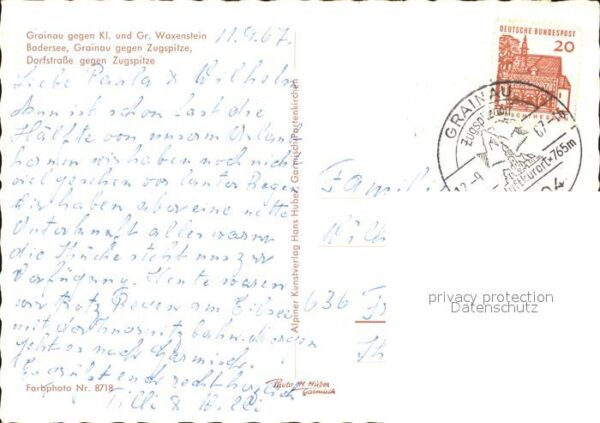 Grainau gegen Kl. und Gr. Waxenstein
Badersee, Grainau gegen Zugspitze,
Dorfstraße gegen Zugspitze
11.9.67.
Liebe Paula & Wilhelm
nun ist schon fast die
Hälfte von unserm Urlaub
herum wir haben noch nicht
viel gesehen vor lauter Regen
Wir haben aber eine nette
Unterkunft alles warm
die Küche steht uns zur
Verfügung. Heute waren
wir trotz Regen am Eibsee
mit der
geht es nach
Es grüßt euch recht herzlich
Tilli & Willi
Farbphoto Nr. 8718
Alpiner Kunstverlag Hans Huber, Garmisch-Partenkirchen
Photo H. Huber
Garmisch
DEUTSCHE BUNDESPOST
20
GRAINAU
Zugspitzdorf
Luftkurort 765m
Famili
Wilh
636 Fr
Th
privacy protection
Datenschutz